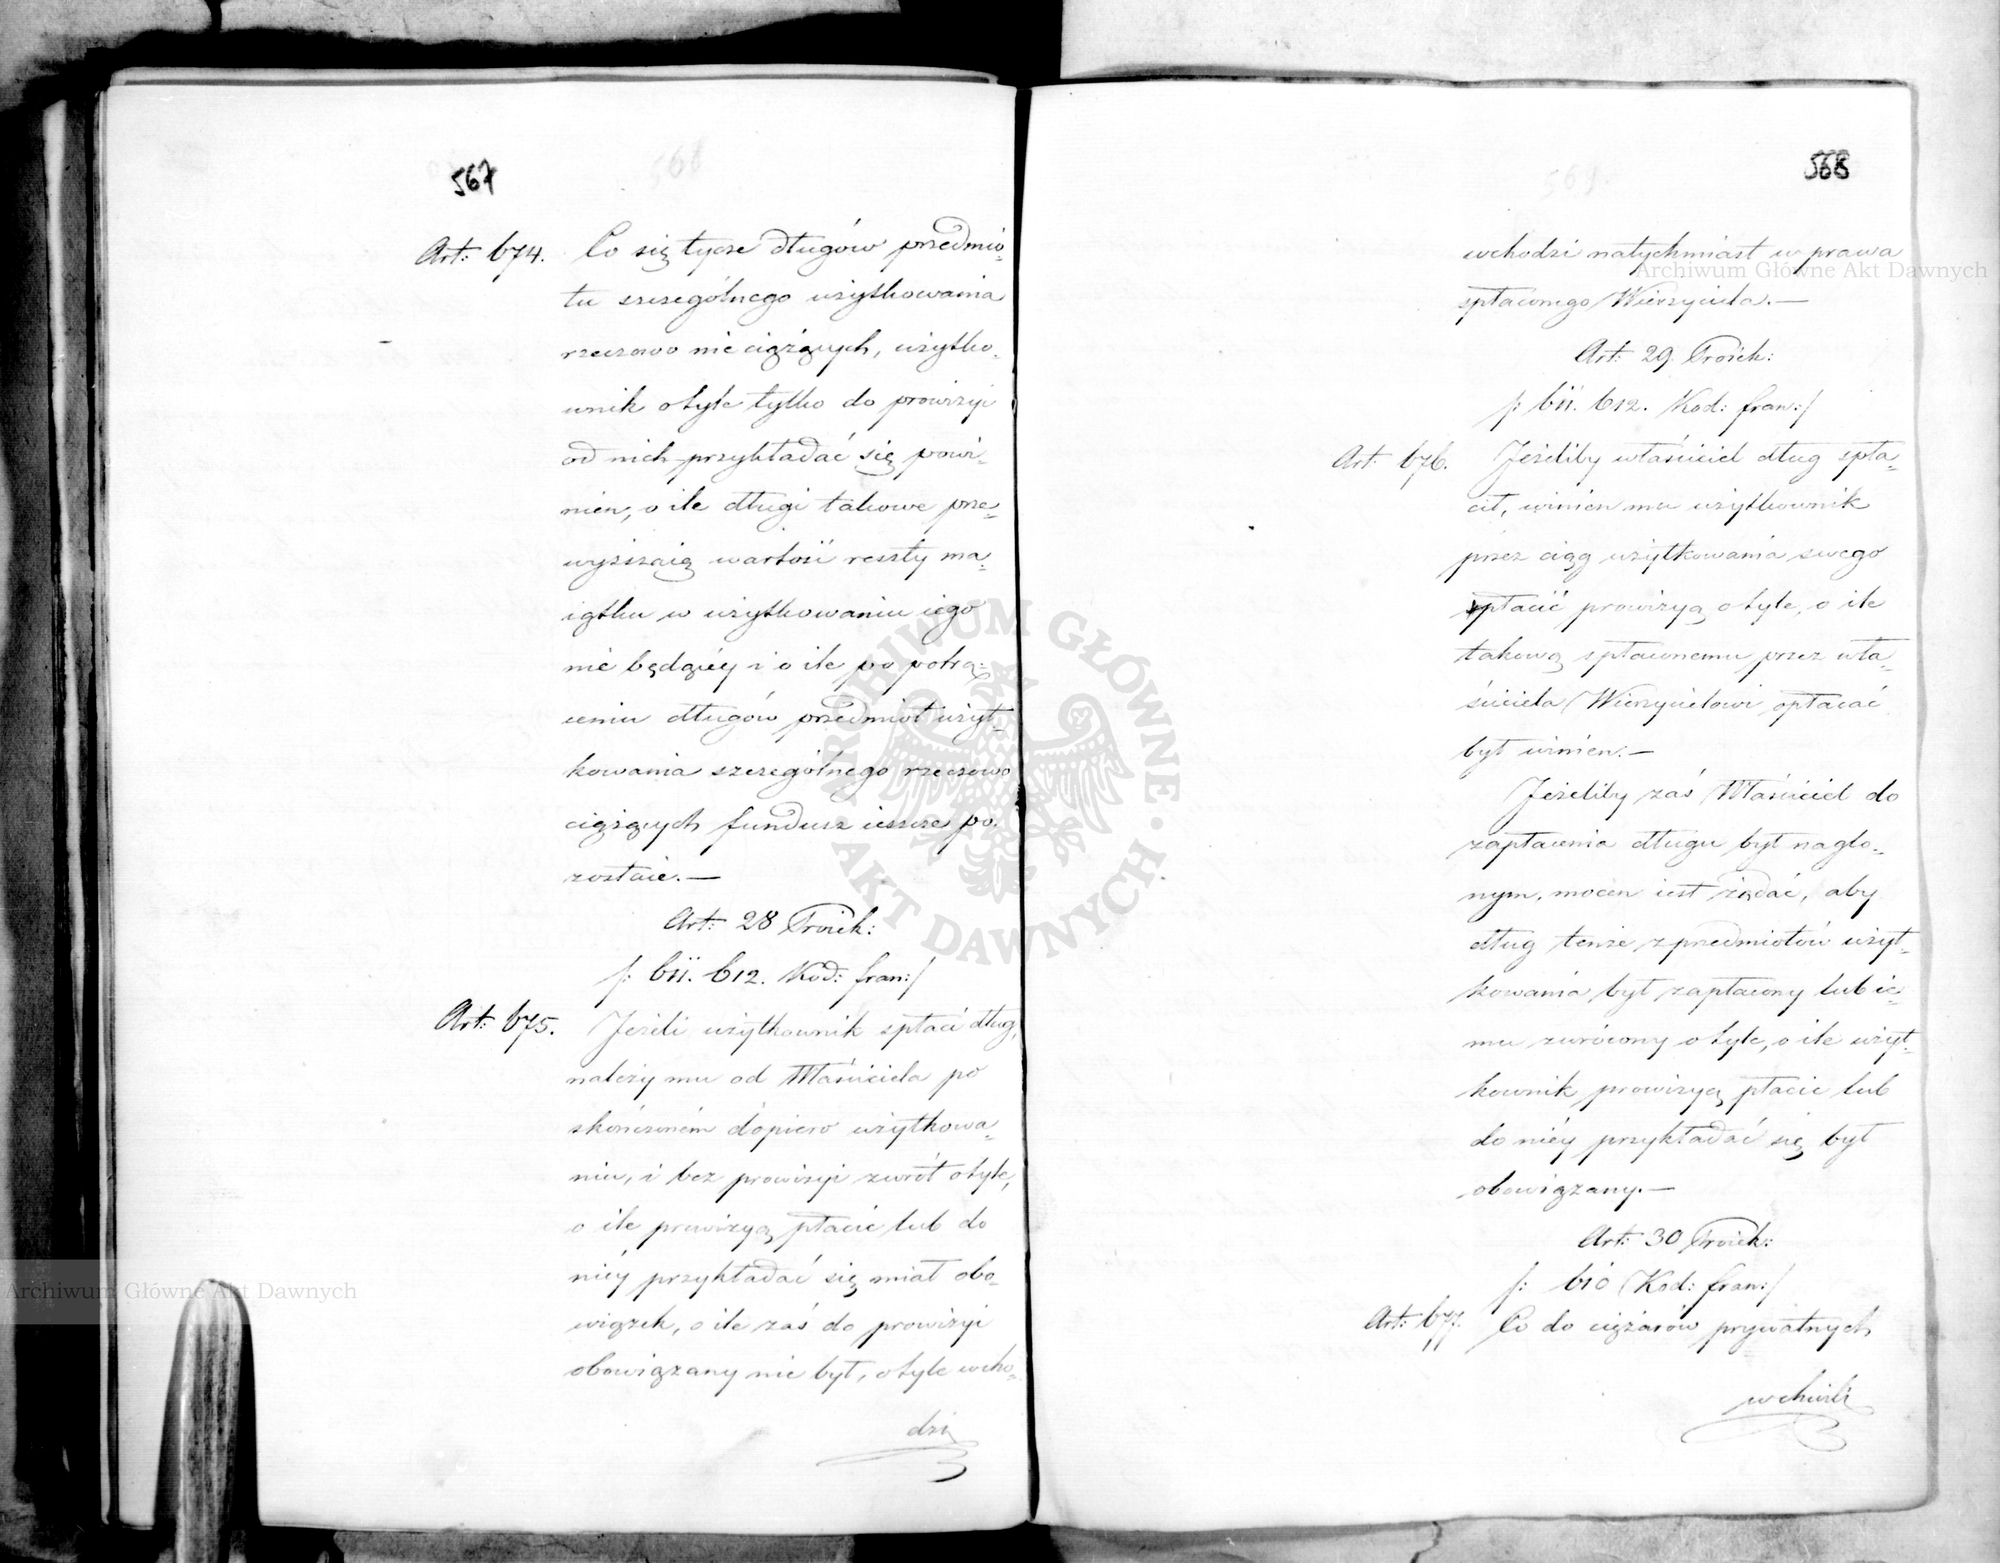 567
Art: 674. Co się tycze długów przedmio-
tu szczególnego użytkowania
rzeczowo nie ciążących, użytko-
wnik o tyle tylko do prowizyi
od nich przykładać się powi-
nien, o ile długi takowe prze-
wyższaią wartość reszty ma-
iątku w użytkowaniu iego
nie będącéy i o ile po potrą-
ceniu długów przedmiot użyt-
kowania szczególnego rzeczowo
ciążących fundusz ieszcze po-
zostaie.—
Art: 28 Proiek:
/: 611. 612. Kod: fran:/
Art: 675. Jeżeli użytkownik spłaci dług,
należy mu od Właściciela po
skończoném dopiero użytkowa-
niu, i bez prowizyi zwrót o tyle,
o ile prowizyą płacić lub do
niéy przykładać się miał obo-
wiązek, o ile zaś do prowizyi
obowiązany nie był, o tyle wcho-
dzi
568
wchodzi natychmiast w prawa
spłaconego Wierzyciela.—
Art: 29. Proiek:
/: 611. 612. Kod: fran:/
Art: 676. Jeżeliby właściciel dług spła-
cił, winien mu użytkownik
przez ciąg użytkowania swego
płacić prowizyą o tyle, o ile
takową spłaconemu przez wła-
ściciela Wierzycielowi opłacać
był winien.—
Jeżeliby zaś Właściciel do
zapłacenia długu był naglo-
nym, mocen iest żądać, aby
dług tenże z przedmiotów użyt-
kowania był zapłacony lub ie-
mu zwrócony o tyle, o ile użyt-
kownik prowizyą płacić lub
do niéy przykładać się był
obowiązany.—
Art: 30 Proiek:
/: 610 Kod: fran:/
Art: 677. Co do ciężarów prywatnych
w chwili
Archiwum Główne Akt Dawnych
Archiwum Główne Akt Dawnych
ARCHIWUM GŁÓWNE · AKT DAWNYCH ·